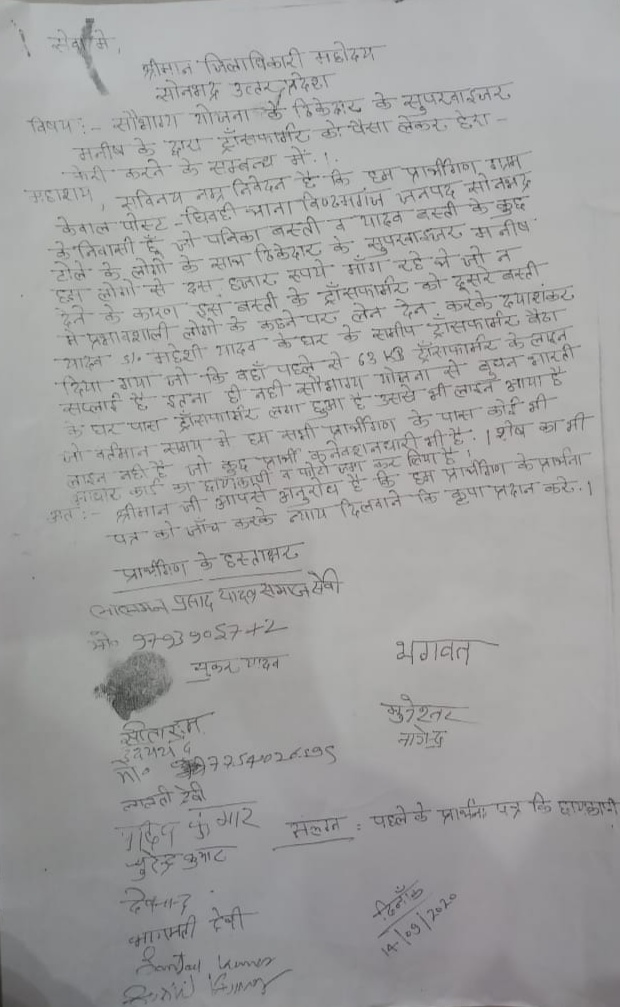 सेवा में,
श्रीमान जिलाधिकारी महोदय
सोनभद्र उत्तर प्रदेश
विषय :- सौभाग्य योजना के ठिकेदार के सुपरवाइजर
मनीष के द्वारा ट्राँसफार्मर को पैसा लेकर हेरा -
फेरी करने के सम्बन्ध में . ! .
महाशय, सविनय नम्र निवेदन है कि हम प्रार्थीगण ग्राम
केवाल पोस्ट - घिवही थाना विण्ढमगंज जनपद सोनभद्र
के निवासी हूँ जो पनिका बस्ती व यादव बस्ती के कुछ
टोले के लोगों के साथ ठिकेदार के सुपरवाइजर मनीष
हम लोगों से दस हजार रुपये माँग रहे थे जो न
देने के कारण इस बस्ती के ट्राँसफार्मर को दुसरे बस्ती
में प्रभावशाली लोगों के कहने पर लेन देन करके दयाशंकर
यादव s/o महेशी यादव के घर के समीप ट्राँसफार्मर बैठा
दिया गया जो कि वहाँ पहले से 63 KB ट्राँसफार्मर के लाइन
सप्लाई है इतना ही नही सौभाग्य योजना से बुधन भारती
के घर पास ट्राँसफार्मर लगा हुआ है उससे भी लाइन आया है
जो वर्तमान समय में हम सभी प्रार्थीगण के पास कोई भी
लाइन नही है जो कुछ प्रार्थी कनेक्शनधारी भी है . । शेष का भी
आधार कार्ड का छायाकापी व फोटो जमा कर लिया है !
अतः :- श्रीमान जी आपसे अनुरोध है कि हम प्रार्थीगण के प्रार्थना
पत्र को जाँच करके न्याय दिलवाने कि कृपा प्रदान करे . ।
प्रार्थीगण के हस्ताक्षर
प्रसाद यादव समाज सेवी
मो०
यादव
भगवत
सीताराम
मो०
देवी
कुमार
संलग्न : पहले के प्रार्थना पत्र कि छायाकापी
सुरेन्द्र कुमार
भागमती देवी
दिनाँक
14/09/2020
Kumar